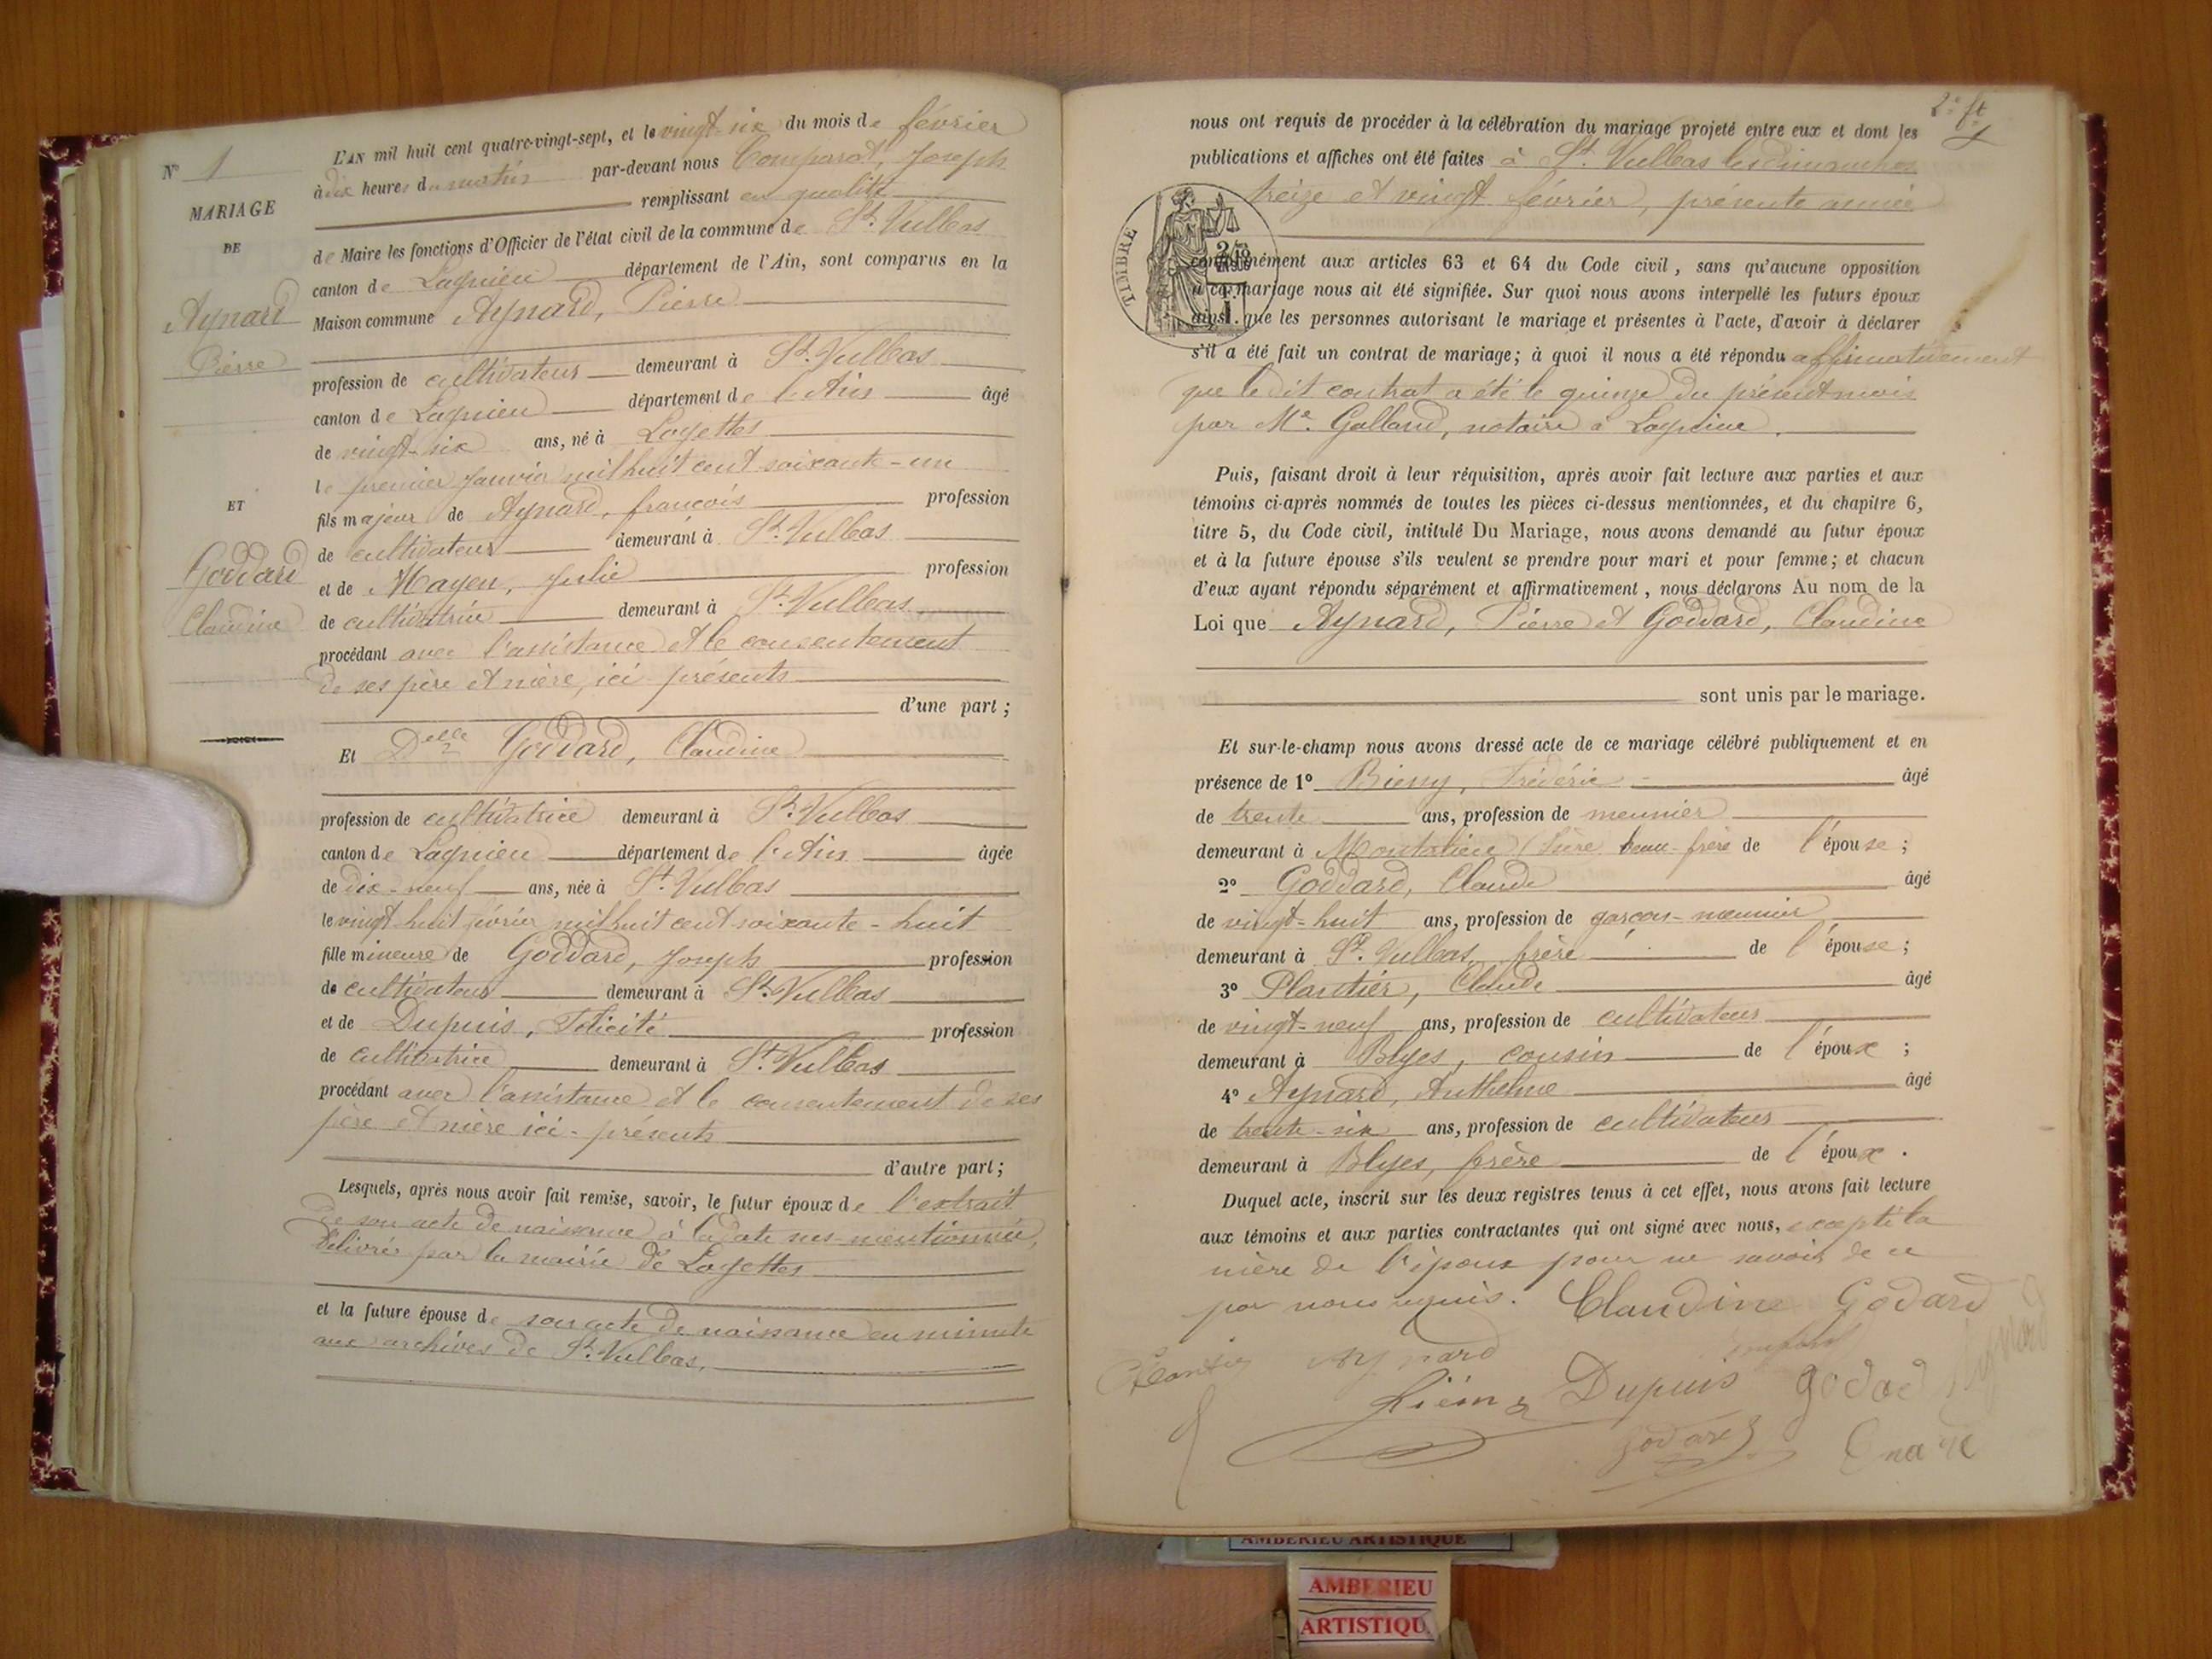 N° 1
MARIAGE
DE
Aynard
Pierre
ET
Goddard
Claudine
L'AN mil huit cent quatre-vingt-sept, et le vingt-six du mois de février
à dix heures du matin par-devant nous Comparat, Joseph
remplissant en qualité
de Maire les fonctions d'Officier de l'état civil de la commune de St. Vulbas
canton de Lagnieu département de l'Ain, sont comparus en la
Maison commune Aynard, Pierre
profession de cultivateur demeurant à St. Vulbas
canton de Lagnieu département de l'Ain âgé
de vingt-six ans, né à Loyettes
le premier janvier mil huit cent soixante-un
fils majeur de Aynard, francois profession
de cultivateur demeurant à St. Vulbas
et de Mayeu, Julie profession
de cultivatrice demeurant à St. Vulbas
procédant avec l'assistance et le consentement
de ses père et mère, ici présents
d'une part ;
Et Delle Goddard, Claudine
profession de cultivatrice demeurant à St. Vulbas
canton de Lagnieu département de l'Ain âgée
de dix-neuf ans, née à St. Vulbas
le vingt huit février mil huit cent soixante-huit
fille mineure de Goddard, Joseph profession
de cultivateur demeurant à St. Vulbas
et de Dupuis, Félicité profession
de cultivatrice demeurant à St. Vulbas
procédant avec l'assistance et le consentement de ses
père et mère ici-présents
d'autre part ;
Lesquels, après nous avoir fait remise, savoir, le futur époux de l'extrait
de son acte de naissance à la date sus-mentionnée,
délivré par la mairie de Loyettes
et la future épouse de son acte de naissance en minute
aux archives de St. Vulbas,
2e ft
nous ont requis de procéder à la célébration du mariage projeté entre eux et dont les
publications et affiches ont été faites à St. Vulbas les dimanches
treize et vingt février, présente année
TIMBRE
conformément aux articles 63 et 64 du Code civil, sans qu'aucune opposition
à ce mariage nous ait été signifiée. Sur quoi nous avons interpellé les futurs époux
ainsi que les personnes autorisant le mariage et présentes à l'acte, d'avoir à déclarer
s'il a été fait un contrat de mariage ; à quoi il nous a été répondu affirmativement
que le dit contrat a été le quinze du présent mois
par Me. Galland, notaire à Lagnieu.
Puis, faisant droit à leur réquisition, après avoir fait lecture aux parties et aux
témoins ci-après nommés de toutes les pièces ci-dessus mentionnées, et du chapitre 6,
titre 5, du Code civil, intitulé Du Mariage, nous avons demandé au futur époux
et à la future épouse s'ils veulent se prendre pour mari et pour femme ; et chacun
d'eux ayant répondu séparément et affirmativement, nous déclarons Au nom de la
Loi que Aynard, Pierre et Goddard, Claudine
sont unis par le mariage.
Et sur-le-champ nous avons dressé acte de ce mariage célébré publiquement et en
présence de 1° Frédéric âgé
de trente ans, profession de meunier
demeurant à Montalieu (Isère beau-frère de l'épouse ;
2° Goddard, Claude âgé
de vingt-huit ans, profession de garçon-meunier
demeurant à St. Vulbas, frère de l'épouse ;
3° Plantier, Claude âgé
de vingt-neuf ans, profession de cultivateur
demeurant à Blyes, cousin de l'époux ;
4° Aynard, Anthelme âgé
de trente-six ans, profession de cultivateur
demeurant à Blyes, frère de l'époux.
Duquel acte, inscrit sur les deux registres tenus à cet effet, nous avons fait lecture
aux témoins et aux parties contractantes qui ont signé avec nous, excepté la
mère de l'époux pour ne savoir de ce
par nous requis. Claudine Godard
Plantier aynard
Dupuis godad
godard
AMBERIEU ARTISTIQUE
AMBERIEU
ARTISTIQU